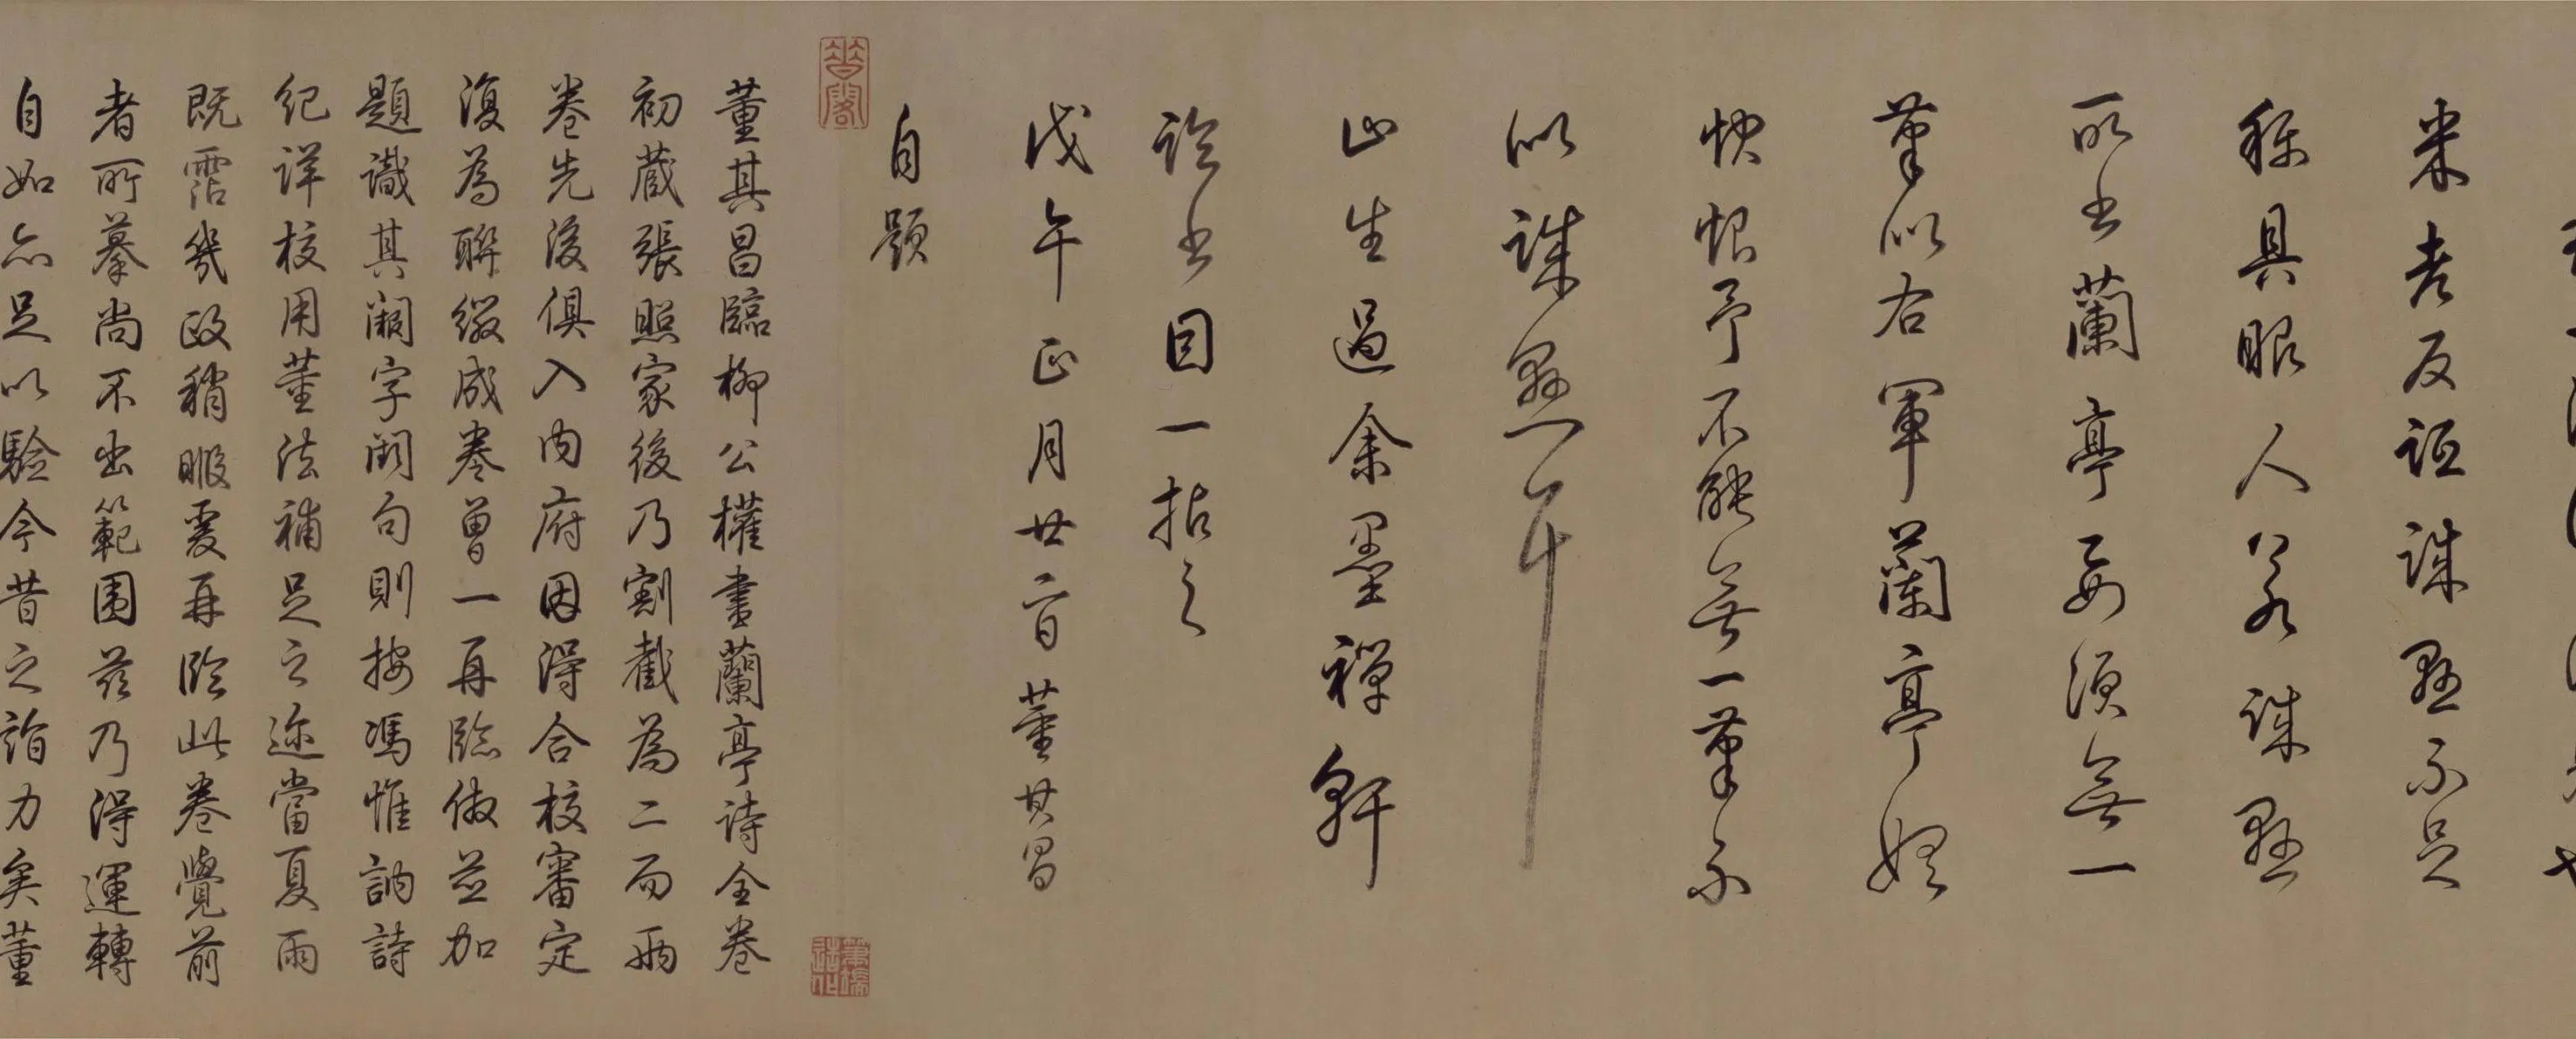 米老反詆誅懸不足
称具眼人若誅懸
所書蘭亭要須無一
筆似右軍蘭亭始
快恨予不能無一筆不
似誅懸耳
山生過余墨禪軒
論書因一拈之
戊午正月廿二日 董其昌
自題
董其昌臨柳公權書蘭亭詩全卷
初蔵張照家後乃割截為二而兩
卷先後俱入內府因得合校審定
復為聯綴成卷曾一再臨倣並加
題識其闕字闕句則按馮惟訥詩
紀詳校用董法補足之迩當夏雨
既霑幾政稍暇爰再臨此卷覺前
者所摹尚不出範圍茲乃得運轉
自如亦足以驗今昔之詣力矣董